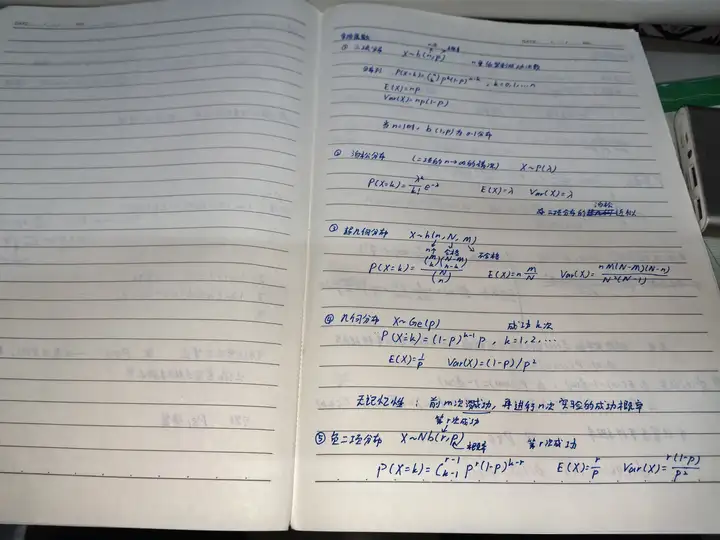 常用离散
① 二项分布 X~b(n,p) n重伯努利成功次数
n次 概率
分布列 P(X=k)=(n k)p^k(1-p)^{n-k}, k=0,1,...n
E(X)=np
Var(X)=np(1-p)
当n=1时, b(1,p)为0-1分布
② 泊松分布 (二项的n→∞的情况) X~P(λ)
P(X=k)=λ^k/k! e^{-λ} E(X)=λ Var(X)=λ
泊松
二项分布的 近似
③ 超几何分布 X~h(n,N,M)
n个 合格 不合格
P(X=k)=(M k)(N-M n-k)/(N n) E(X)=n M/N Var(X)=nM(N-M)(N-n)/N²(N-1)
④ 几何分布 X~Ge(p) 成功k次
P(X=k)=(1-p)^{k-1}p, k=1,2,...
E(X)=1/p Var(X)=(1-p)/p²
无记忆性: 前m次 成功, 再进行n次实验的成功概率
第r次成功
⑤ 负二项分布 X~Nb(r,p) 第r次成功
概率
P(X=k)=C_{k-1}^{r-1}p^r(1-p)^{k-r} E(X)=r/p Var(X)=r(1-p)/p²